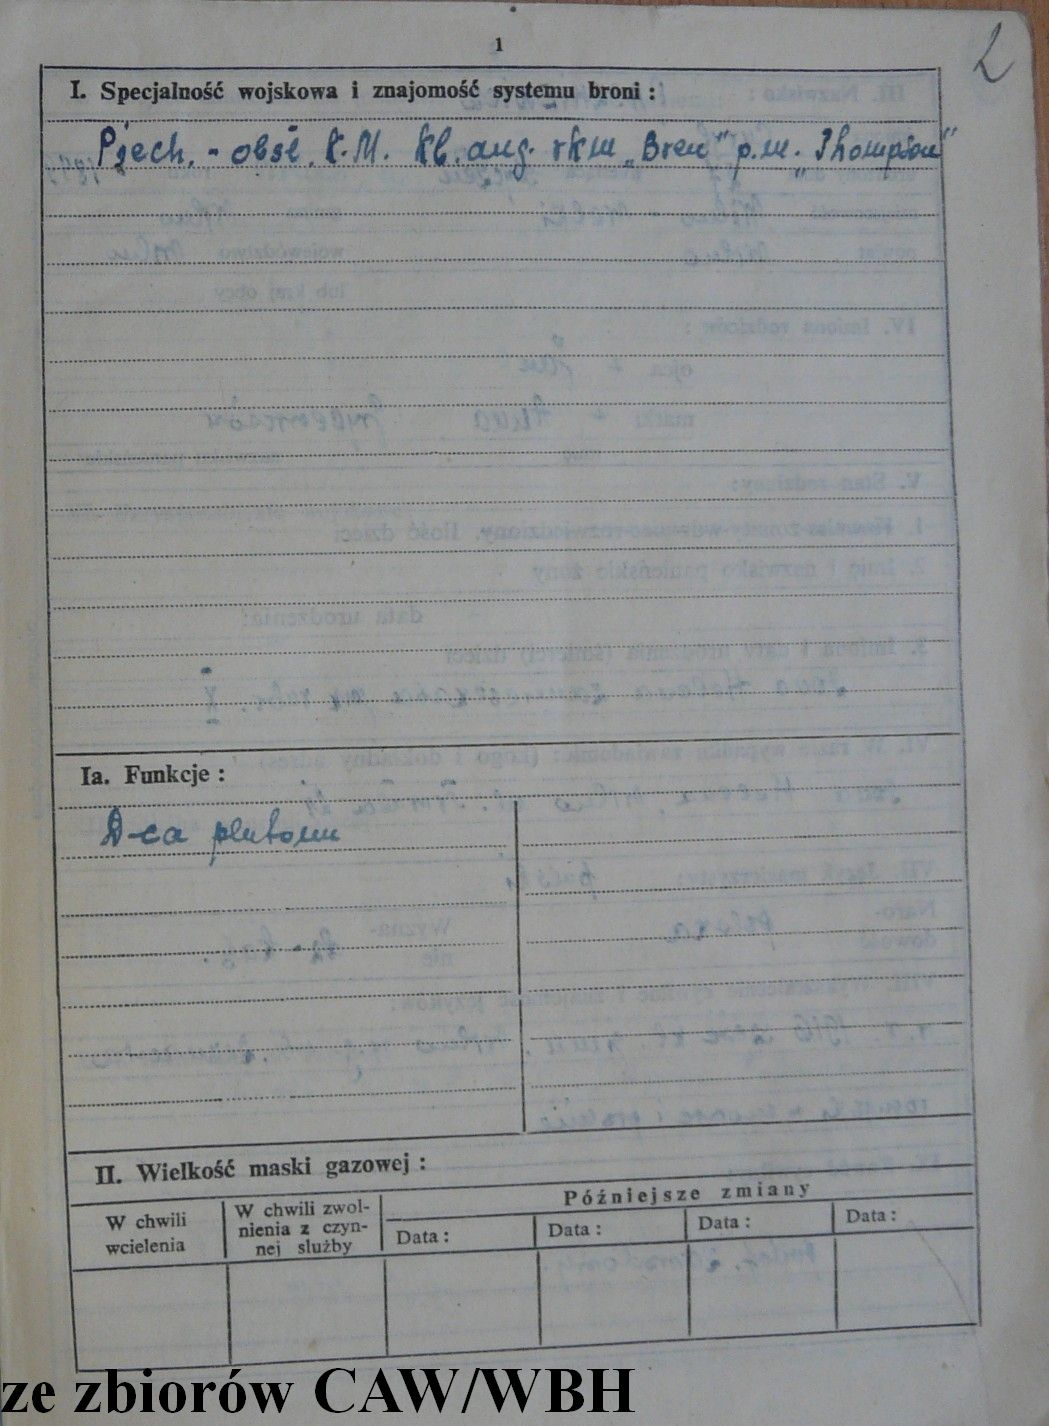 1
2
I. Specjalność wojskowa i znajomość systemu broni :
Piech. - obsł. K.M. kb. ang. rkm „Bren" p.m. „Thompson"
Ia. Funkcje :
D-ca plutonu
II. Wielkość maski gazowej :
W chwili wcielenia
W chwili zwol-
nienia z czyn-
nej służby
Późniejsze zmiany
Data : Data : Data : Data :
ze zbiorów CAW/WBH